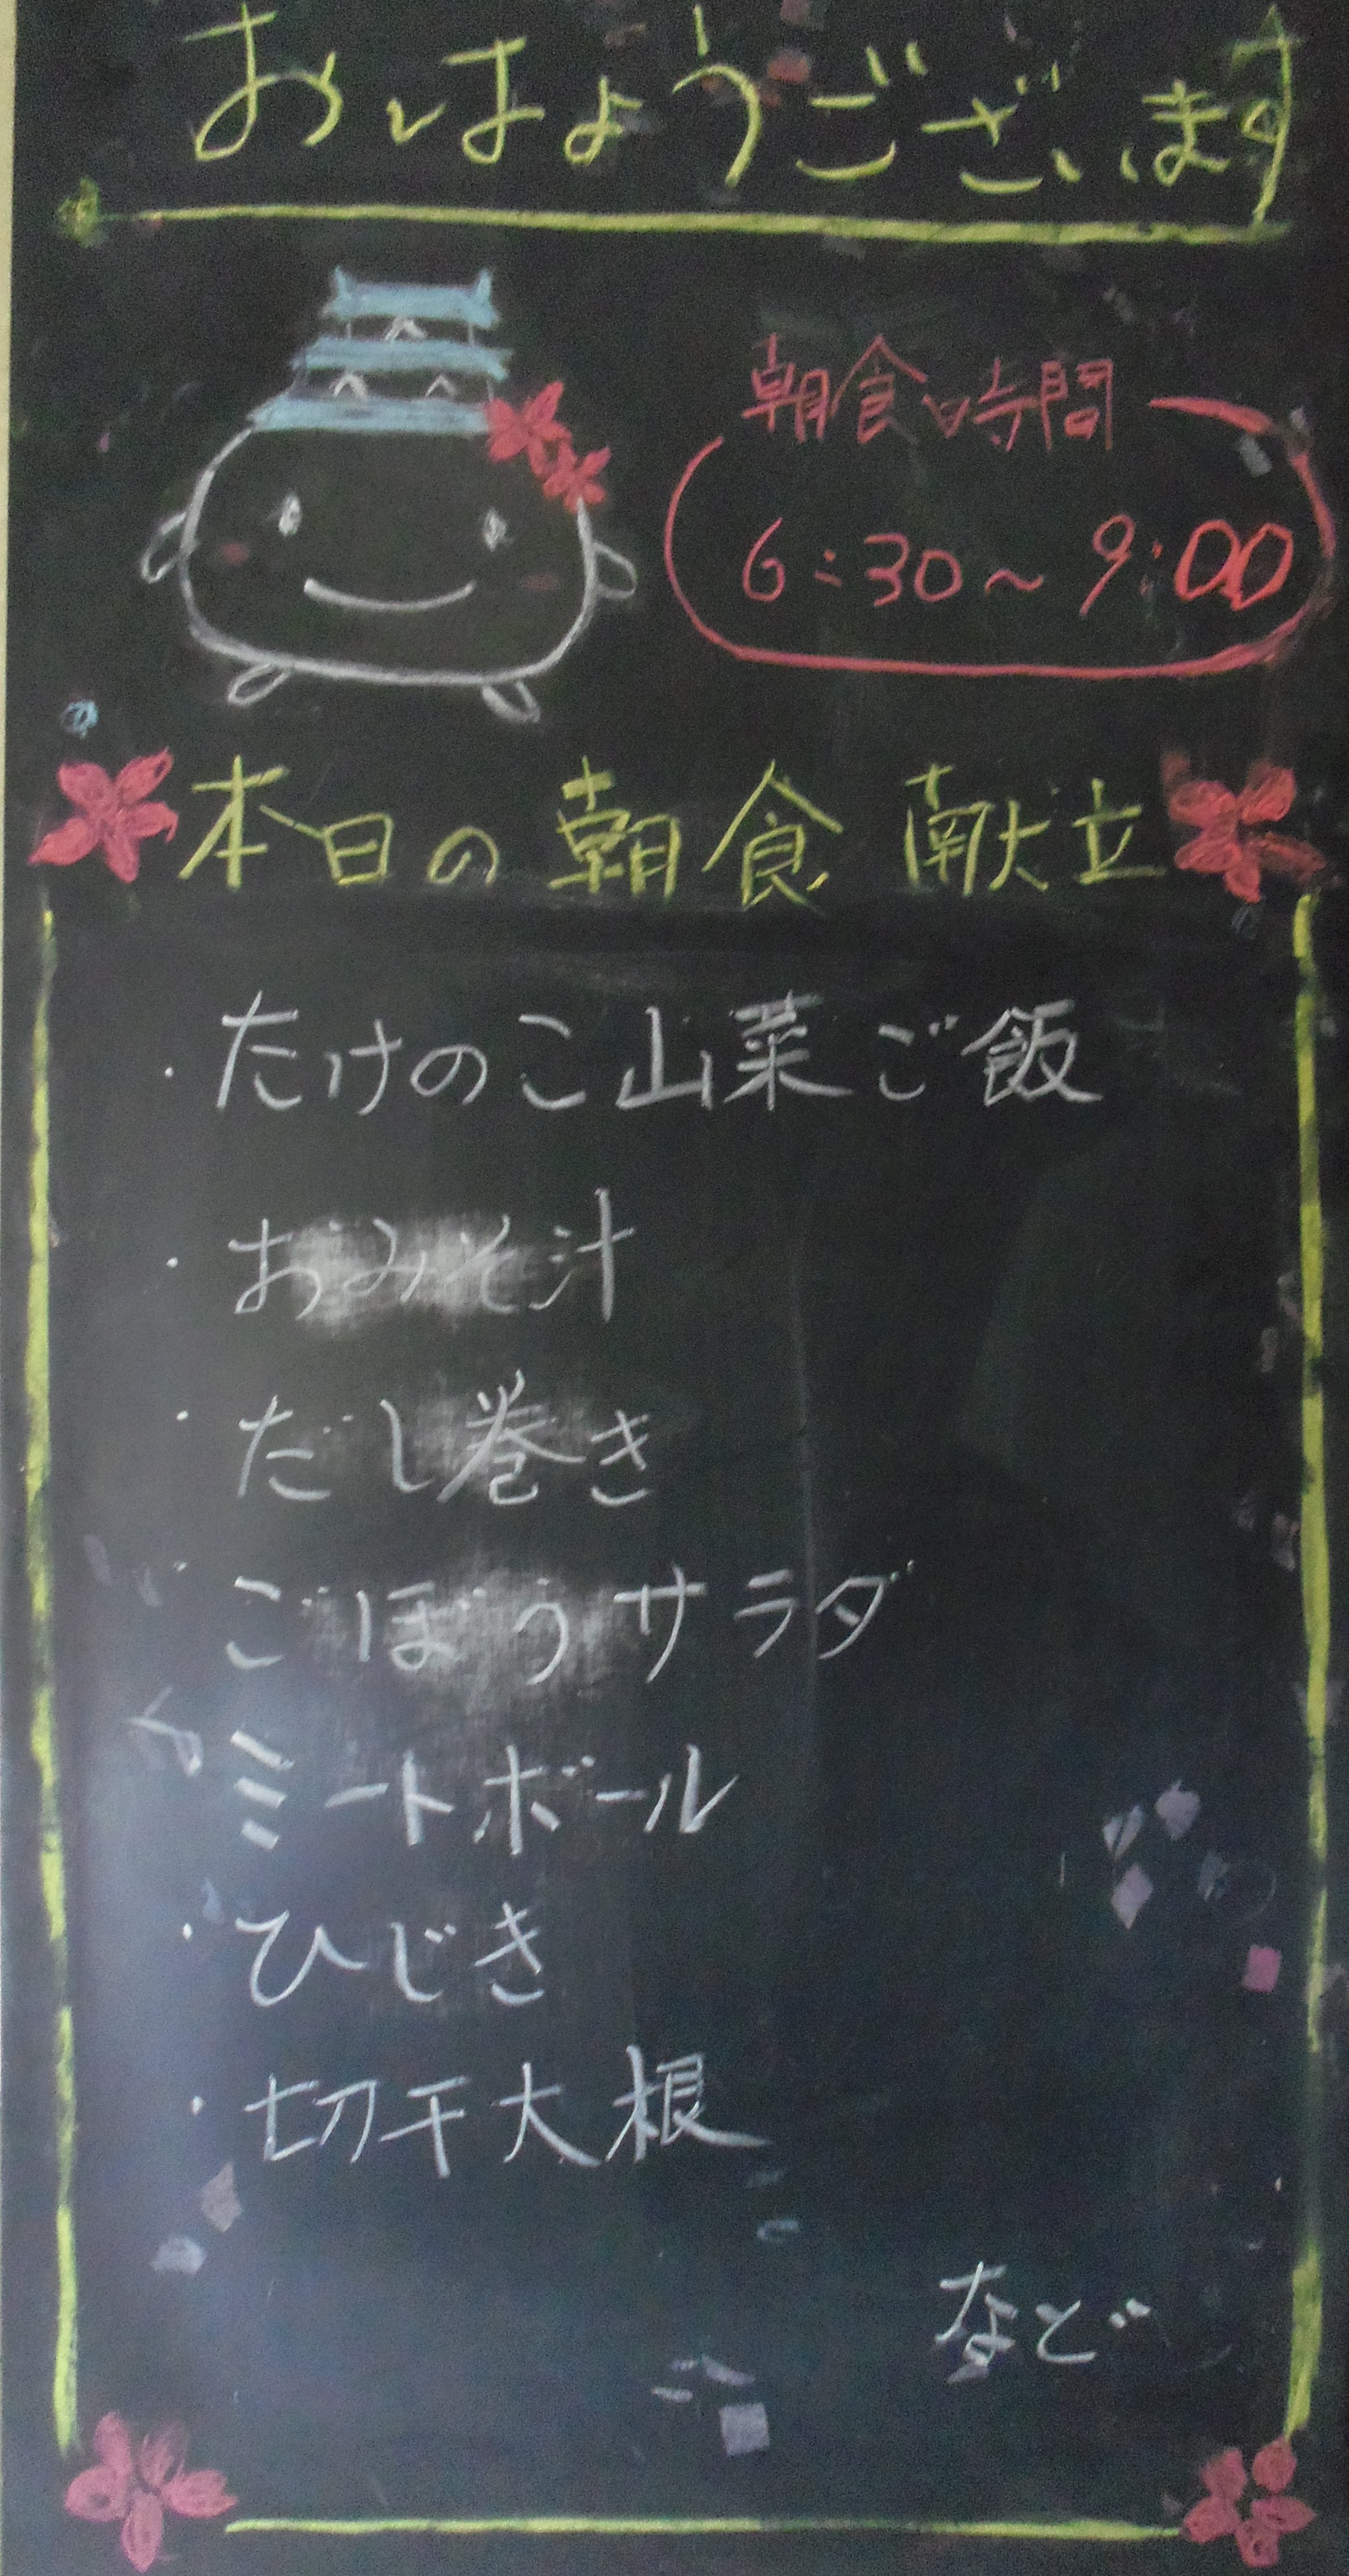 おはようございます
朝食時間
6:30～9:00
本日の朝食献立
・たけのこ山菜ご飯
・おみそ汁
・だし巻き
・ごぼうサラダ
ミートボール
・ひじき
・切干大根
など